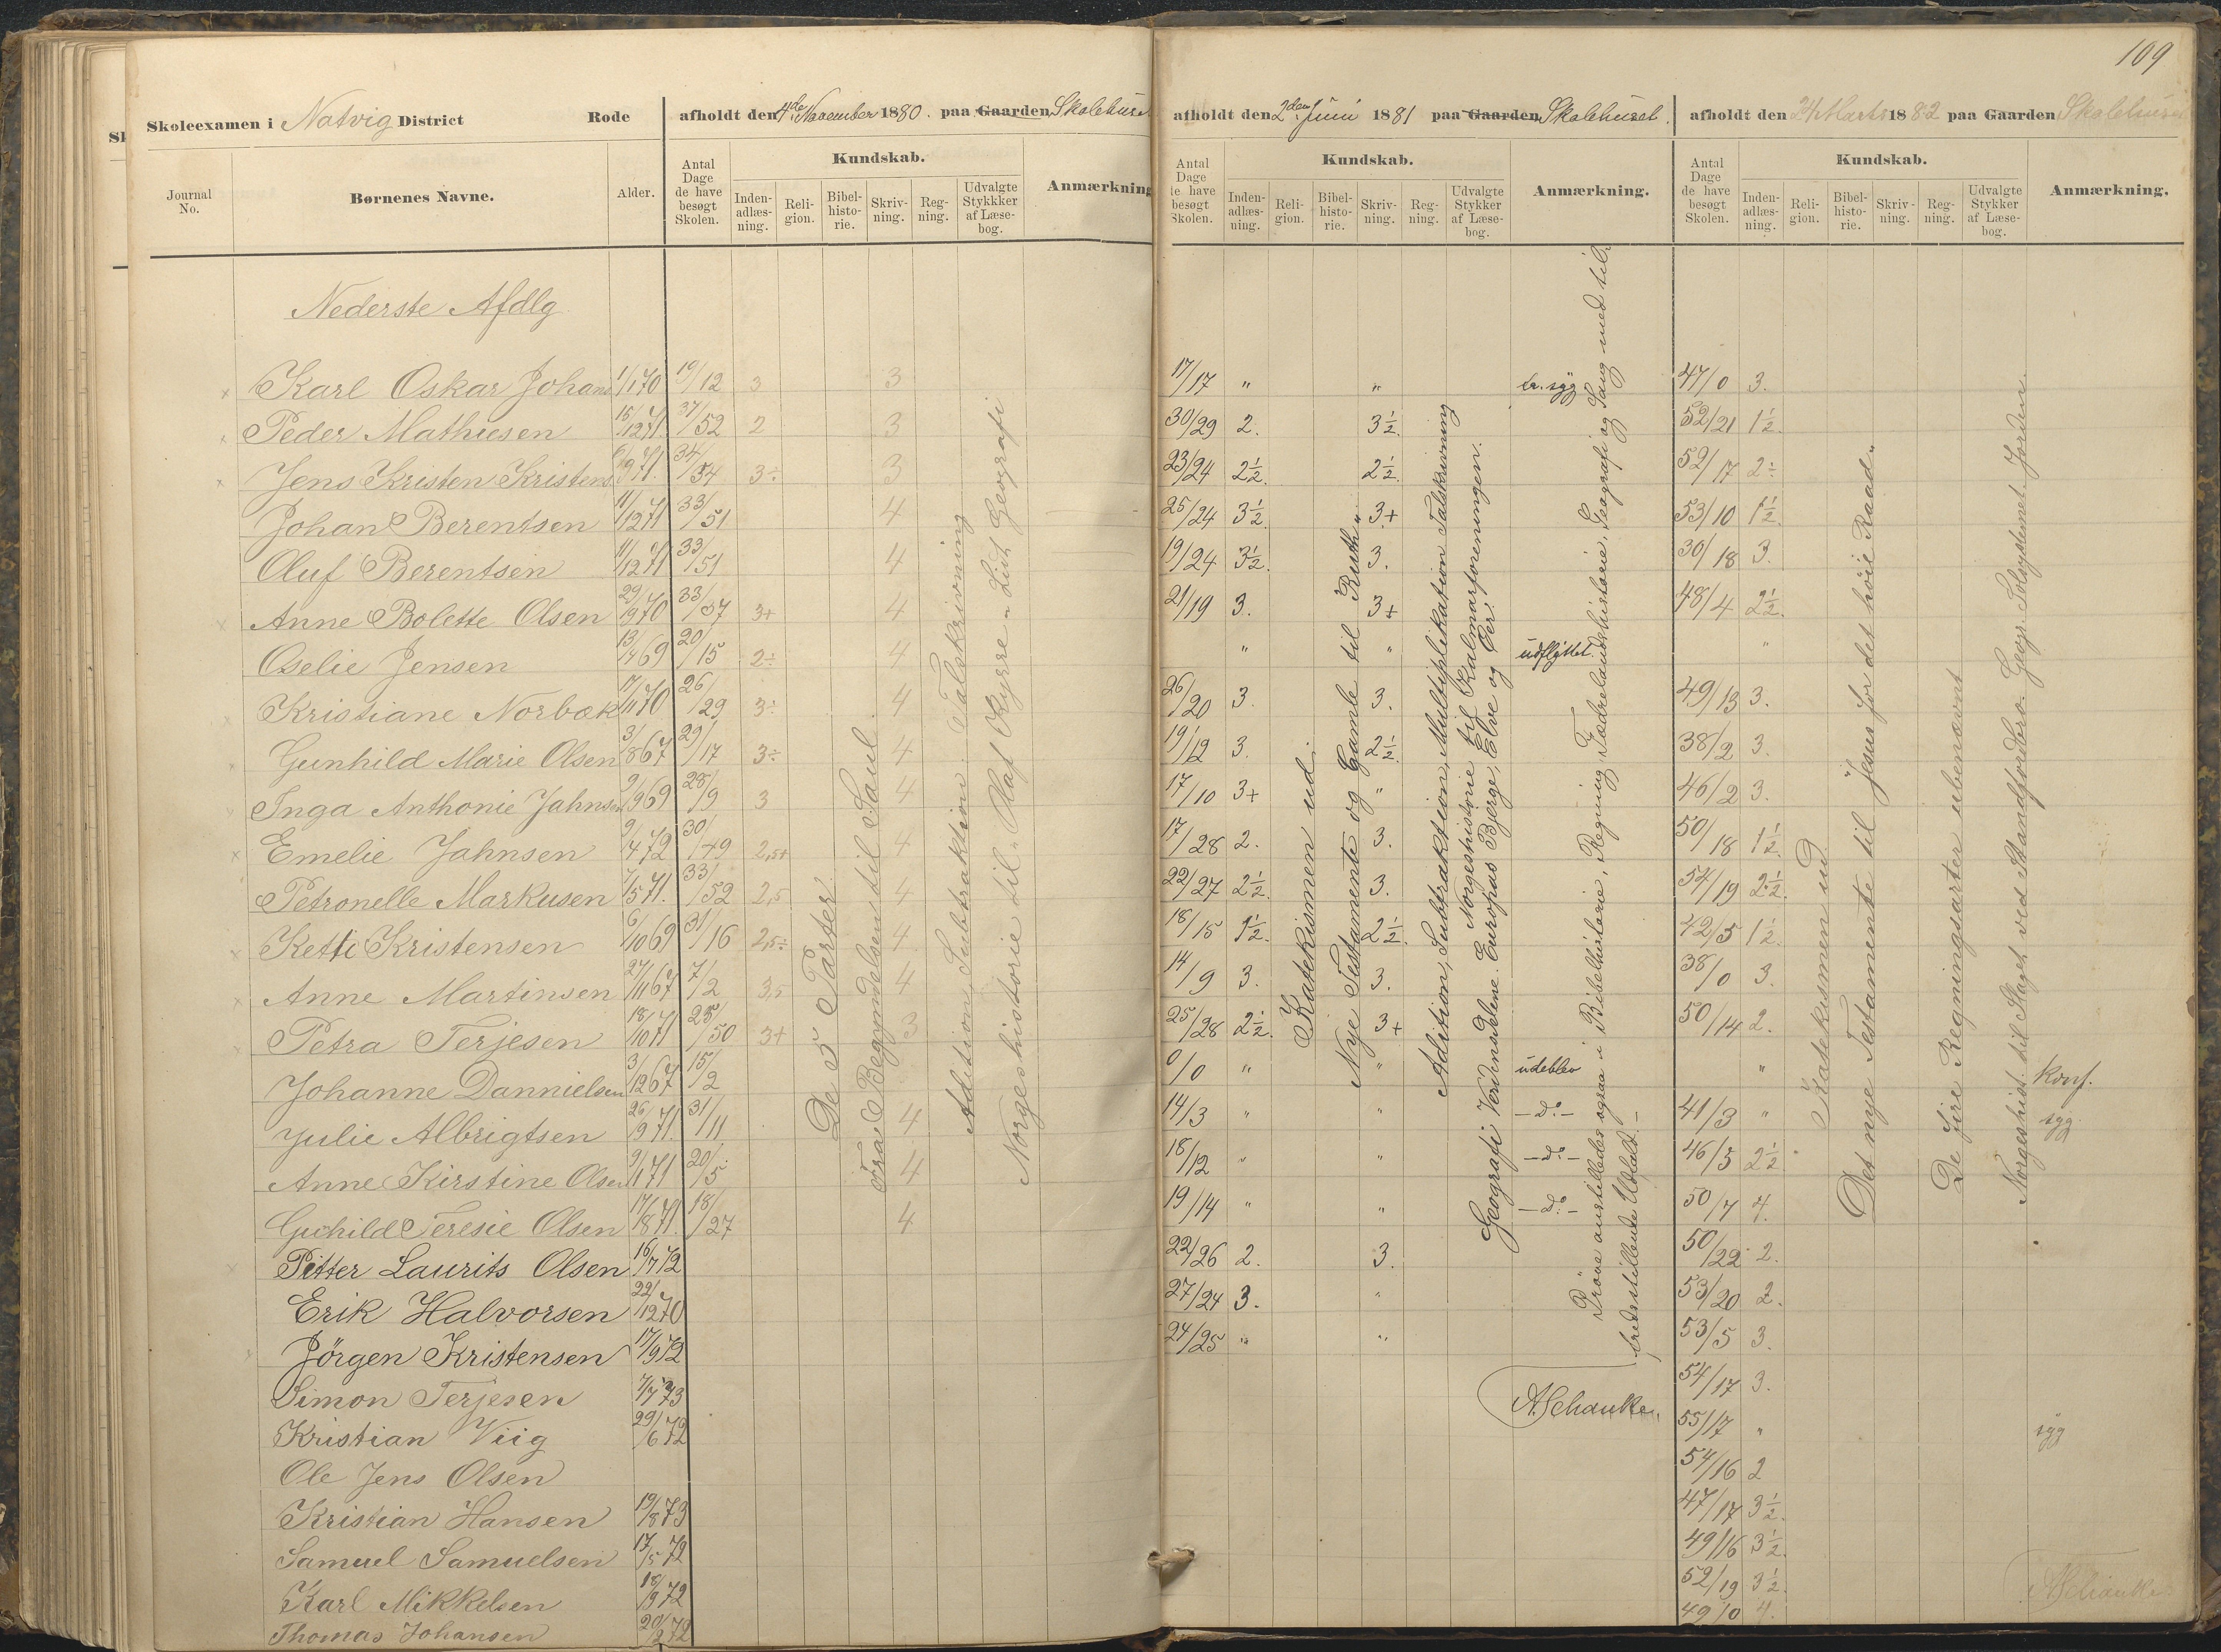 109
Skoleexamen i Natvig District Rode
afholdt den 4de November 1880. paa Gaarden Skolehuset
afholdt den 2den Juni 1881 paa Gaarden Skolehuset.
afholdt den 24 Marts 1882 paa Gaarden Skolehuset
Journal No. Børnenes Navne. Alder. Antal Dage de have besøgt Skolen. Kundskab. Inden-adlæs-ning. Reli-gion. Bibel-histo-rie. Skriv-ning. Reg-ning. Udvalgte Stykkker af Læse-bog. Anmærkning
Antal Dage de have besøgt Skolen. Kundskab. Inden-adlæs-ning. Reli-gion. Bibel-histo-rie. Skriv-ning. Reg-ning. Udvalgte Stykker af Læse-bog. Anmærkning.
Antal Dage de have besøgt Skolen. Kundskab. Inden-adlæs-ning. Reli-gion. Bibel-histo-rie. Skriv-ning. Reg-ning. Udvalgte Stykker af Læse-bog. Anmærkning.
Nederste Afdlg
Karl Oskar Johans 1/1 70 19/12 3 3 17/17 " " br. syg 47/0 3.
Peder Mathiesen 15/12 71. 37/52 2 3 30/29 2. 3½. 52/21 1½.
Jens Kristen Kristens 9 71. 34/54 3÷ 3 23/24 2½. 2½. 52/17 2÷
Johan Berentsen 11/12 71 33/51 4 25/24 3½. 3+ 53/10 1½.
Oluf Berentsen 11/12 71 33/51 4 19/24 3½. 3. 30/18 3.
Anne Bolette Olsen 29/9 70 33/57 3+ 4 21/19 3. 3+ 48/4 2½.
Oselie Jensen 13/4 69 20/15 2÷ 4 " " udflyttet. "
Kristiane Norbæk 17/11 70 26/29 3÷ 4 26/20 3. 3. 49/13 3.
Gunhild Marie Olsen 3/8 67 29/17 3÷ 4 19/12 3. 2½. 38/2 3.
Inga Anthonie Jahnsen 9/9 69 28/9 3 4 17/10 3+ " 46/2 3.
Emelie Jahnsen 9/4 72 30/49 2,5+ 4 17/28 2. 3. 50/18 1½.
Petronelle Markusen 7/5 71. 33/52 2,5 4 22/27 2½. 3. 54/19 2½.
Ketti Kristensen 6/10 69 31/16 2,5÷ 4 18/15 1½. 2½. 42/5 1½.
Anne Martinsen 27/11 67 7/2 3,5 4 14/9 3. 3. 38/0 3.
Petra Terjesen 18/10 71 25/50 3+ 3 25/28 2½. 3+ 50/14 2.
Johanne Dannielsen 3/12 67 15/2 0/0 " " udeblev " Konf.
Julie Albrigtsen 26/9 71. 31/11 4 14/3 " " – do – 41/3 " syg
Anne Kirstine Olsen 9/1 71 20/5 4 18/12 " " – do – 46/5 2½
Guhild Teresie Olsen 17/8 71. 18/27 4 19/14 " " – do – 50/7 4.
Pitter Laurits Olsen 16/7 72 22/26 2. 3. 50/22 2.
Erik Halvorsen 22/12 70 27/24 3. " 53/20 2.
Jörgen Kristensen 17/9 72 24/25 " " 53/5 3.
Simon Terjesen 7/7 73 54/17 3.
Kristian Viig 29/6 72 55/17 " syg
Ole Jens Olsen 54/16 2
Kristian Hansen 19/8 73 47/17 3½.
Samuel Samuelsen 17/5 72 49/16 3½.
Karl Mikkelsen 18/9 72 52/19 3½.
Thomas Johansen 20/2 72 49/0 4.
De 5 Parter
Fra Begyndelsen til Saul
Adition, Subtraktion. Talskrivning
Norgeshistorie til "Olaf Kyrre" Lidt Geografi
Katekismen ud.
Nye Testamente og Gamle til "Ruth".
Adition, Subtraktion, Multiplikation Talskrivning
Norgeshistorie til Kalmarforeningen.
Geografi Verdensdelene. Europas Bjerge, Elve og Øer.
Prøve anstilledes ogsaa i Bibelhistorie, Regning, Fædrelandshistorie, Geografi og Sang med til-
fredsstillende Udfald. –
A. Schanke.
Katekismen ud
Det nye Testamente til "Jesus for det høie Raad".
De fire Regningsarter ubenævnt
Norgeshist. til Slaget ved Standfordbro. Geogr. Solsystemet. Jorden.
A. Schanke